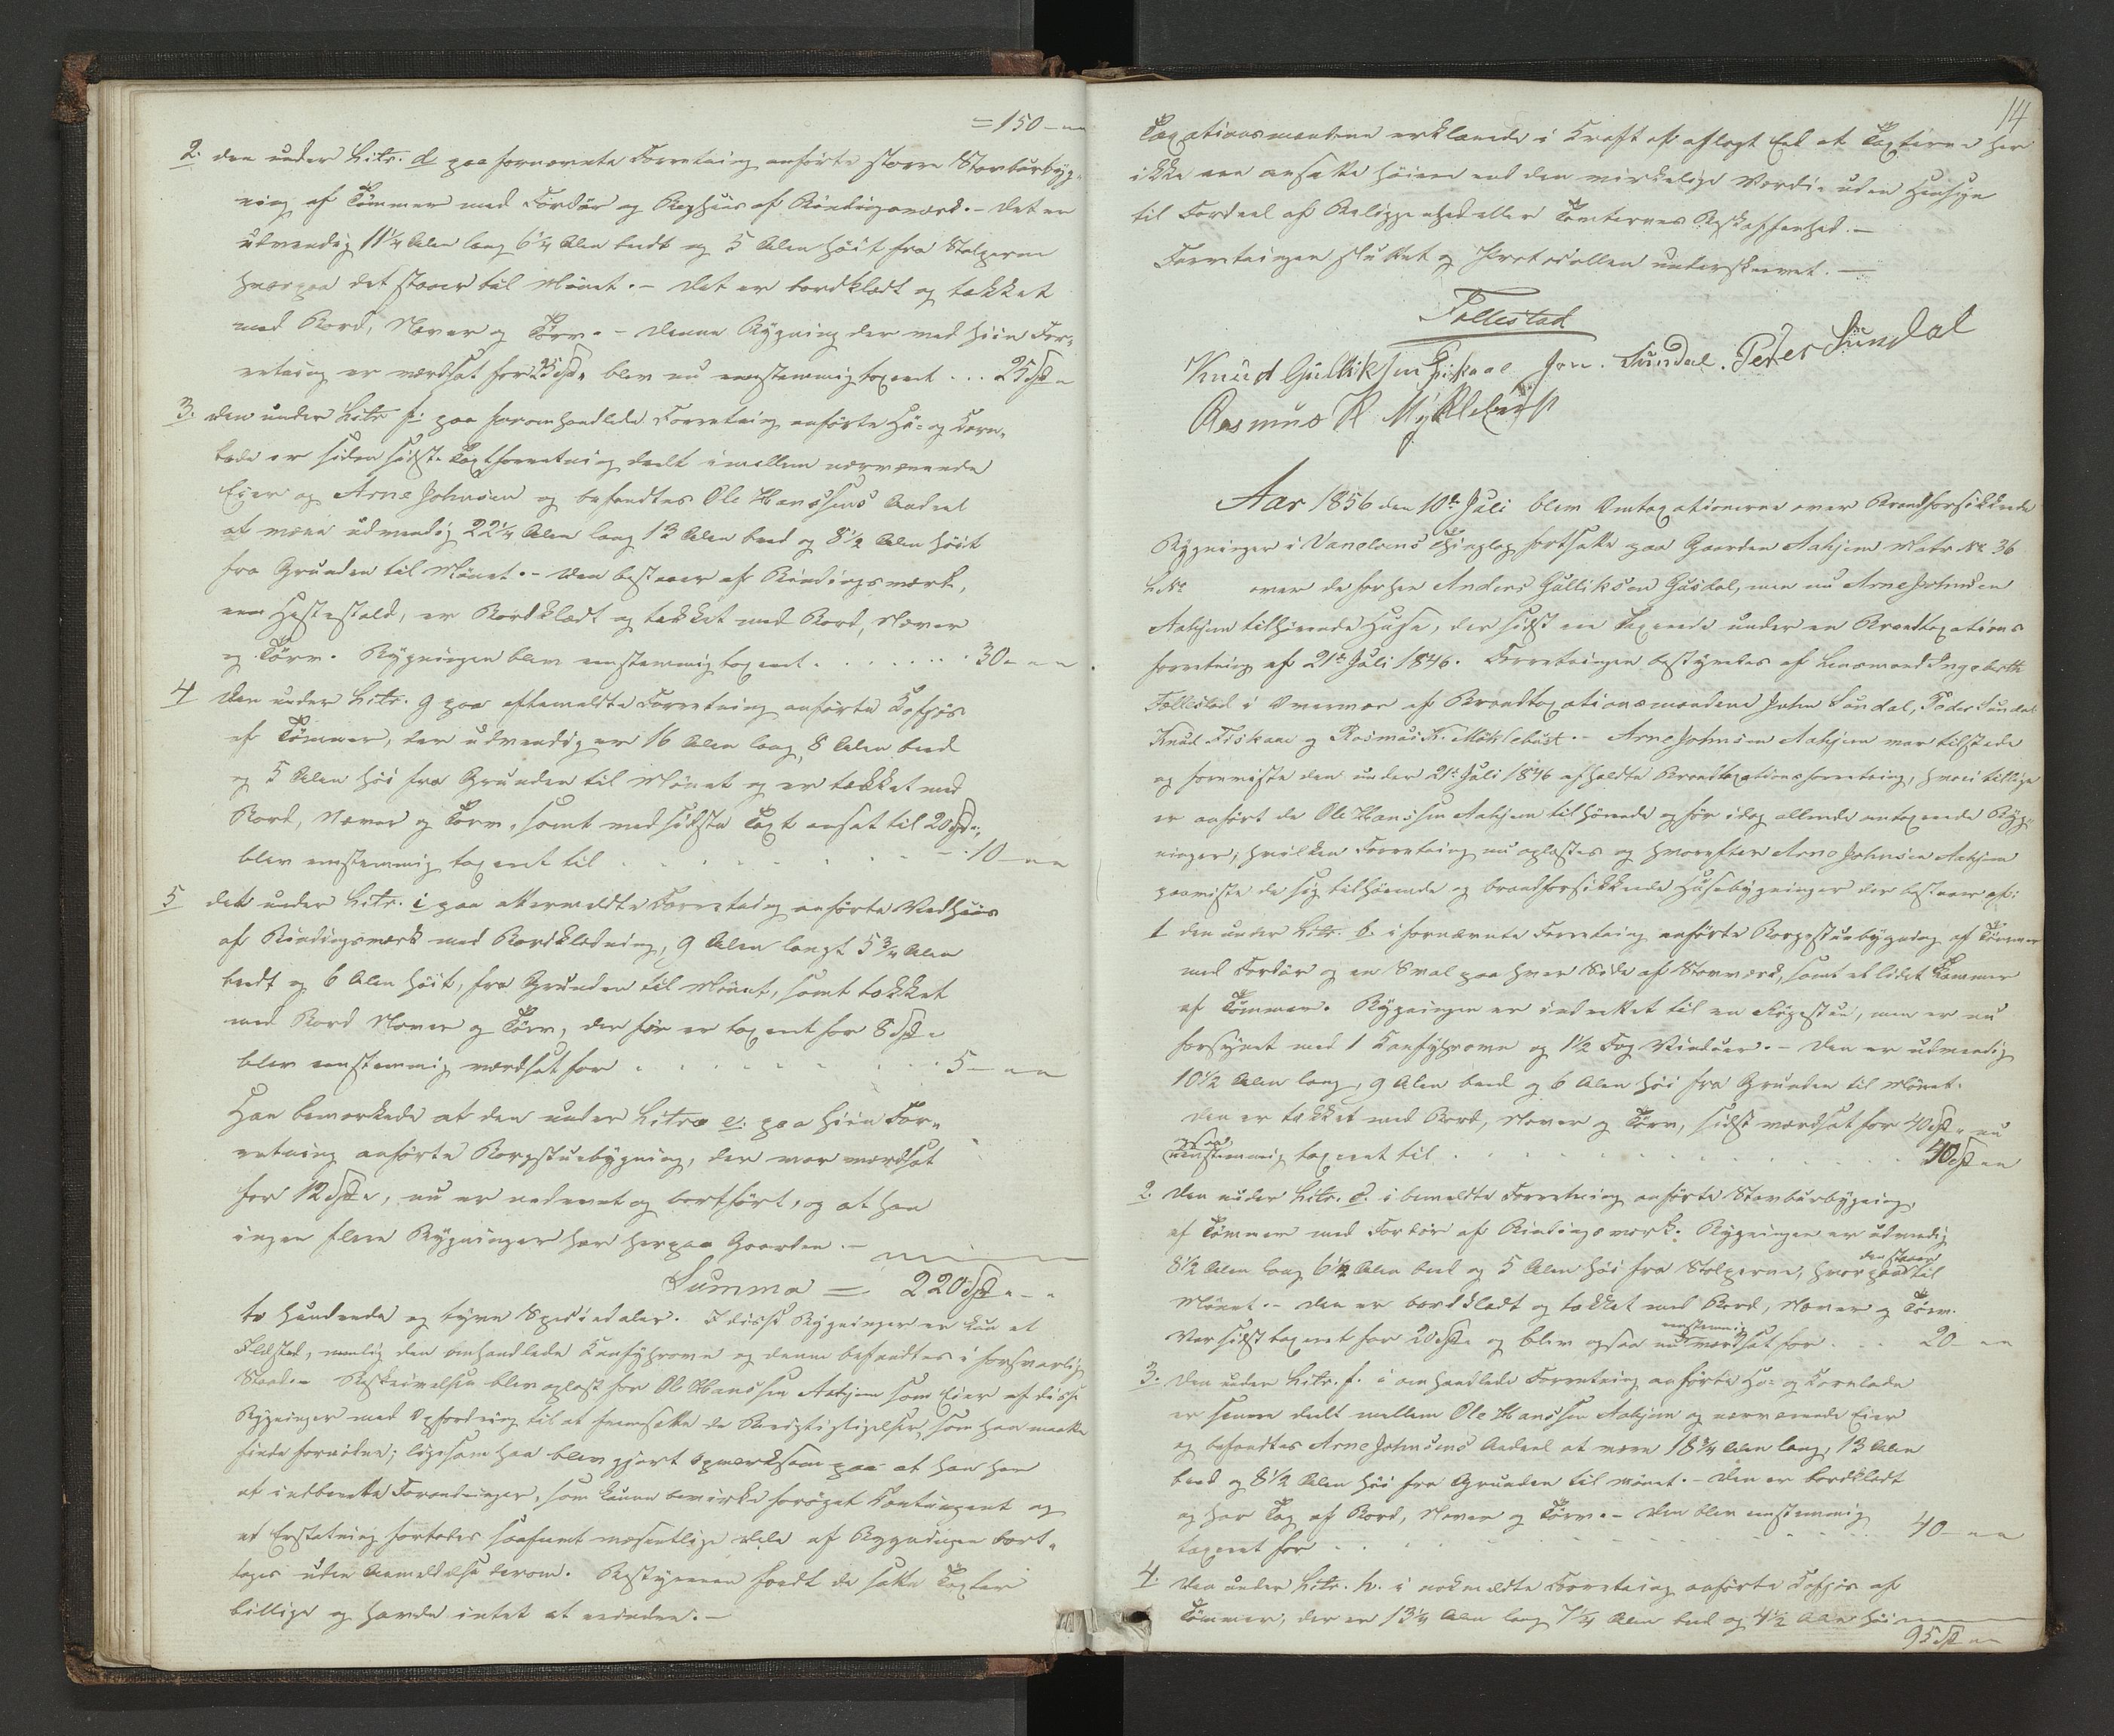 = 150 - " "
2. den under Litr. d paa fornævnte Forretning anförte större Stavbursbyg-
ning af Tömmer med Fordör og Baghuus af Bindingsværk. - Det er
udvendig 11¼ Alen lang 6¼ Alen bredt og 5 Alen höit fra Stolperne
hvorpaa det staaer til Mönet. - Det er bordklædt og tækket
med Bord, Næver og Törv. - Denne Bygning der ved hiin For-
retning er værdsat for 25 Spd. blev nu eenstemmig taxeret ... 25 Spd "
3. Den under Litr f. paa foromhandlede Forretning anförte Hö- og Korn-
lade er siden sidste Taxtforretning deelt imellem nærværende
Eier og Arne Johnsen og befandtes Ole Hanssens Andeel
at være udvendig 22¼ Alen lang 13 Alen bred og 8½ Alen höit
fra Grunden til Mönet. - Den bestaaer af Bindingsværk,
en Hestestald, er Bordklædt og tækket med Bord, Næver
og Törv. Bygningen blev eenstemmig taxeret . . . . . . . 30 - " "
4 Den under Litr. g paa eftermeldte Forretning anförte Kofjös
af Tömmer, der udvendig er 16 Alen lang, 8 Alen bred
og 5 Alen höi fra Grunden til Mönet og er tækket med
Bord, Næver og Törv, samt ved sidste Taxt ansat til 20 Spd.,
blev eenstemmig taxeret til . . . . . . . . 10 - " "
5 det under Litr. i paa oftermeldte Forretning anförte Vedhuus
af Bindingsværk med Bordklædning, 9 Alen langt 5¾ Alen
bredt og 6 Alen höit, fra Grunden til Mönet, samt tækket
med Bord Næver og Törv, der för er taxeret for 8 Spd "
blev eenstemmig værdsat for . . . . . . . 5 - " "
Han bemærkede at den under Litra e. paa hiin For-
retning anförte Borgstuebygning, der var værdsat
for 12 Spd ", nu er nedrevet og bortfört, og at han
ingen flere Bygninger har herpaa Gaarden. -
Summa = 220 Spd " - "
to hundrede og tyve Speciedaler. I disse Bygninger er kun et
Ildsted, nemlig den omhandlede Kakkelovn og denne befandtes i forsvarlig
Stand. - Beskrivelsen blev oplæst for Ole Hanssen Aahjem som Eier af disse
Bygninger med Opfordring til at fremsætte de Berigtigelser, som han maatte
finde fornödne; ligesom han blev gjort opmærksom paa at han har
at indberette Forandringer, som kunne bevirke foröget Contingent og
at Erstatning fortabes saafremt væsentlige Dele af Bygningen bort-
tages uden Anmeldelse derom. Bestyreren fandt de satte Taxter
billige og havde intet at erindre. -
14
Taxationsmændene erklærede i Kraft af aflagt Eed at Taxterne her
ikke ere ansatte höiere end den virkelige Værdie uden Hensyn
til Fordeel af Beliggenhed eller Tomternes Beskaffenhed. -
Forretningen sluttet og Protocollen underskrevet. -
Follestad
Knud Gullikssen Fiskaae Jon. Sundal. Peder Sundal
Rasmus R Myklebust
Aar 1856 den 10de Juli blev Omtaxationerne over Brandforsikkrede
Bygninger i Vanelvens Thinglag fortsatte paa Gaarden Aahjem Matr No 36
L No over de forhen Anders Gulliksen Gusdal, men nu Arne Johnsen
Aahjem tilhörende Huse, der sidst ere taxerede under en Brandtaxations
forretning af 21de Juli 1846. Forretningen bestyredes af Lensmand Ingebrikt
Follestad i Overvær af Brandtaxationsmændene John Sundal, Peder Sundal
Knud Fiskaae og Rasmus R. Möklebust. - Arne Johnsen Aahjem var tilstede
og foreviste den under 21de Juli 1846 afholdte Brandtaxationsforretning, hvori tillige
er anfört de Ole Hanssen Aahjem tilhörende og för idag allerede omtaxerede Byg-
ninger, hvilken Forretning nu oplæstes og hvorefter Arne Johnsen Aahjem
paaviste de sig tilhörende og brandforsikkrede Huusebygninger der bestaaer af:
1 den under Litr. b. i fornævnte Forretning anförte Borgestuebygning af Tömmer
med Fordör og en Sval paa hver Side af Stavværk, samt et lidet Kammer
af Tömmer. Bygningen er indrettet til en Rögestue, men er nu
forsynet med 1 Kakkelovn og 1½ Fag Vinduer. - Den er udvendig
10½ Alen lang, 9 Alen bred og 6 Alen höi fra Grunden til Mönet.
Den er tækket med Bord, Næver og Törv, sidst værdsat for 40 Spd " nu
ogsaa
eenstemmig taxeret til . . . . . . . . . 40 Spd " "
2. Den under Litr. d. i bemeldte Forretning anförte Stavbursbygning,
af Tömmer med Fordör af Bindingsværk. Bygningen er udvendig
8½ Alen lang 6½ Alen bred og 5 Alen höi fra Stolperne, hvorpaa den staaer til
Mönet. - Den er bordklædt og tækket med Bord, Næver og Törv.
Var sidst taxeret for 20 Spd " og blev ogsaa nu eenstemmig værdsat for . . . 20 - " "
3. Den under Litr. f. i omhandlede Forretning anförte Hö- og Kornlade
er senere deelt mellem Ole Hanssen Aahjem og nærværende Eier
og befandtes Arne Johnsens Andeel at være 18¾ Alen lang, 13 Alen
bred og 8½ Alen höi fra Grunden til Mönet. - Den er bordklædt
og har Tag af Bord, Næver og Törv. - Den blev eenstemmig
taxeret for . . . . . . . . 40 - " "
4. Den under Litr. h. i nokmeldte Forretning anförte Kofjös af
Tömmer, der er 13¼ Alen lang 7¼ Alen bred og 4½ Alen höi
95 Spd " "